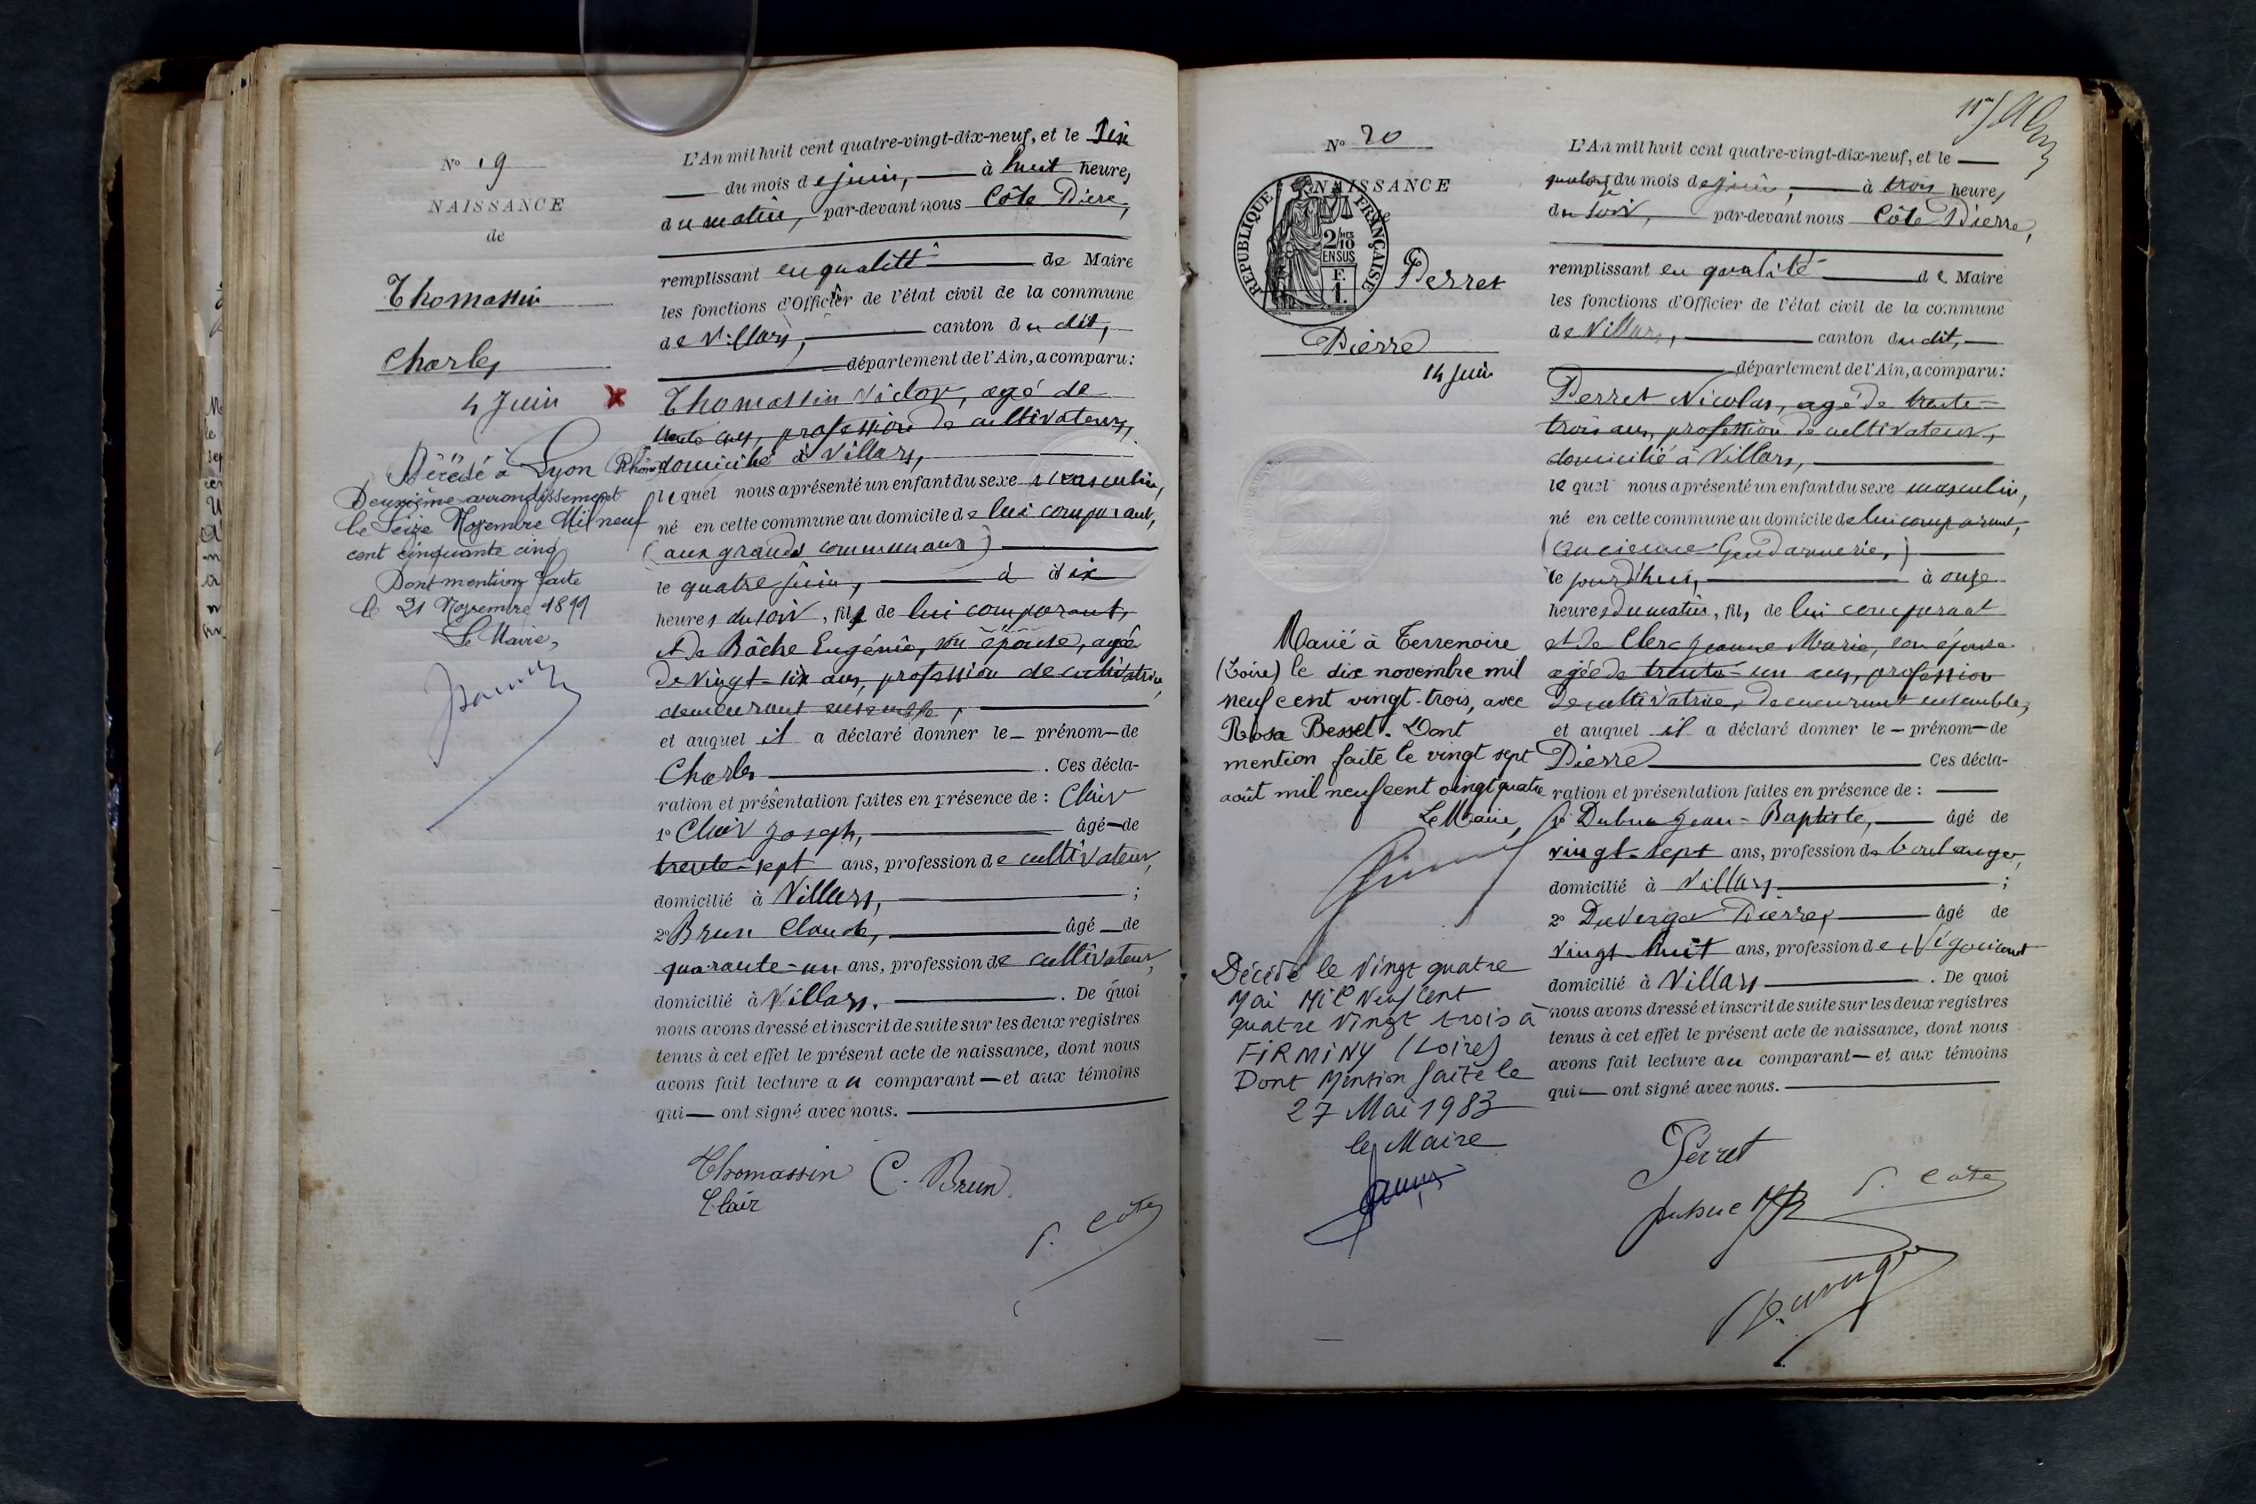 N° 19
NAISSANCE
de
Thomassin
Charles
4 Juin
Décédé à Lyon (Rhône)
Deuxième arrondissement
le Seize Novembre Mil neuf
cent cinquante cinq
Dont mention faite
le 21 Novembre 1899
Le Maire,
L'An mil huit cent quatre-vingt-dix-neuf, et le Six
du mois de juin, à huit heures
du matin, par-devant nous Côte Pierre,
remplissant en qualité de Maire
les fonctions d'Officier de l'état civil de la commune
de Villars, canton du dit,
département de l'Ain, a comparu:
Thomassin Victor, agé de
trente ans, profession de cultivateur,
domicilié à Villars,
lequel nous a présenté un enfant du sexe masculin,
né en cette commune au domicile de lui comparant,
(aux grands communaux)
le quatre juin, à dix
heures du soir, fils de lui comparant,
et de Bâche Eugénie, son épouse, agée
de vingt-six ans, profession de cultivatrice,
demeurant ensemble,
et auquel il a déclaré donner le prénom de
Charles. Ces décla-
ration et présentation faites en présence de : Clair
1° Clair Joseph, âgé de
trente-sept ans, profession de cultivateur,
domicilié à Villars, ;
2° Brun Claude, âgé de
quarante-un ans, profession de cultivateur,
domicilié à Villars. . De quoi
nous avons dressé et inscrit de suite sur les deux registres
tenus à cet effet le présent acte de naissance, dont nous
avons fait lecture au comparant et aux témoins
qui ont signé avec nous.
Thomassin C. Brun
Clair
P. Côte
N° 20
NAISSANCE
REPUBLIQUE FRANÇAISE
2/10 EN SUS
F. 1.
Perret
Pierre
14 Juin
Marié à Terrenoire
(Loire) le dix novembre mil
neuf cent vingt-trois, avec
Rosa Besset. Dont
mention faite le vingt sept
août mil neuf cent vingt quatre
Le Maire,
Décédé le vingt quatre
Mai Mil Neuf Cent
quatre vingt trois à
FIRMINY (Loire)
Dont Mention faite le
27 Mai 1983
le Maire
L'An mil huit cent quatre-vingt-dix-neuf, et le
quatorze du mois de juin, à trois heures
du soir, par-devant nous Côte Pierre,
remplissant en qualité de Maire
les fonctions d'Officier de l'état civil de la commune
de Villars, canton du dit,
département de l'Ain, a comparu:
Perret Nicolas, agé de trente-
trois ans, profession de cultivateur,
domicilié à Villars,
lequel nous a présenté un enfant du sexe masculin,
né en cette commune au domicile de lui comparant,
(ancienne Gendarmerie,)
le jourd'hui, à onze
heures du matin, fils de lui comparant
et de Clerc Jeanne Marie, son épouse
agée de trente-un ans, profession
de cultivatrice, demeurant ensemble,
et auquel il a déclaré donner le prénom de
Pierre Ces décla-
ration et présentation faites en présence de :
1° Dubuc Jean-Baptiste, âgé de
vingt-sept ans, profession de boulanger,
domicilié à Villars ;
2° Duverger Pierre, âgé de
vingt-huit ans, profession de Négociant
domicilié à Villars . De quoi
nous avons dressé et inscrit de suite sur les deux registres
tenus à cet effet le présent acte de naissance, dont nous
avons fait lecture au comparant et aux témoins
qui ont signé avec nous.
Perret
P. Côte
Dubuc JB
Duverger